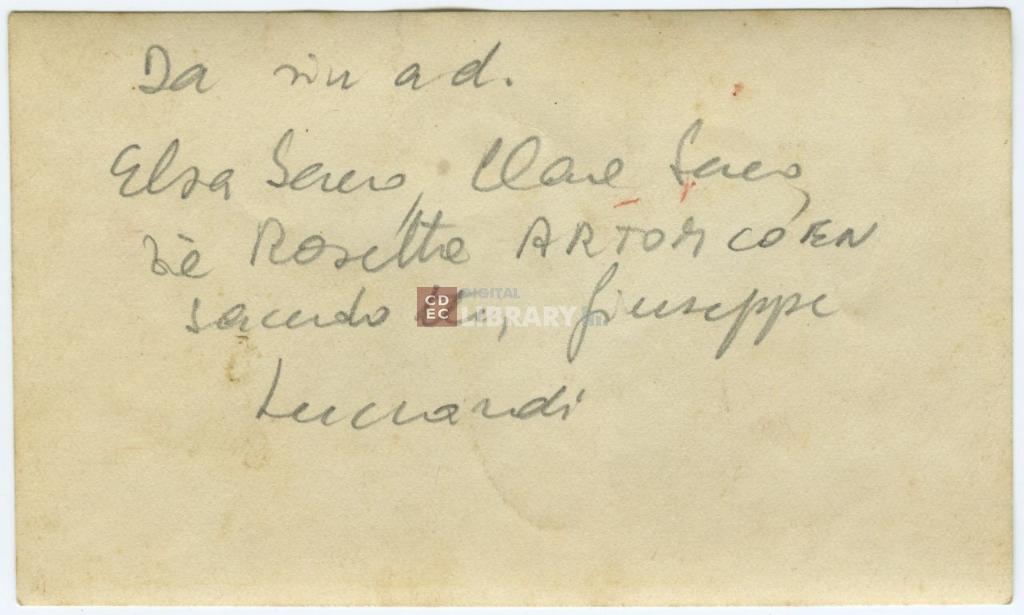 Da sin a d.
Elsa Sereno, Clare Sereno,
zie Rosetta ARTOM COEN
Sacerdo Giuseppe
CDEC DIGITAL LIBRARY.it